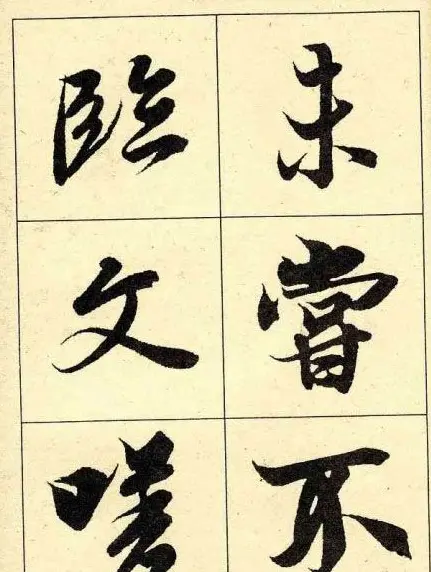 未嘗不
臨文嗟